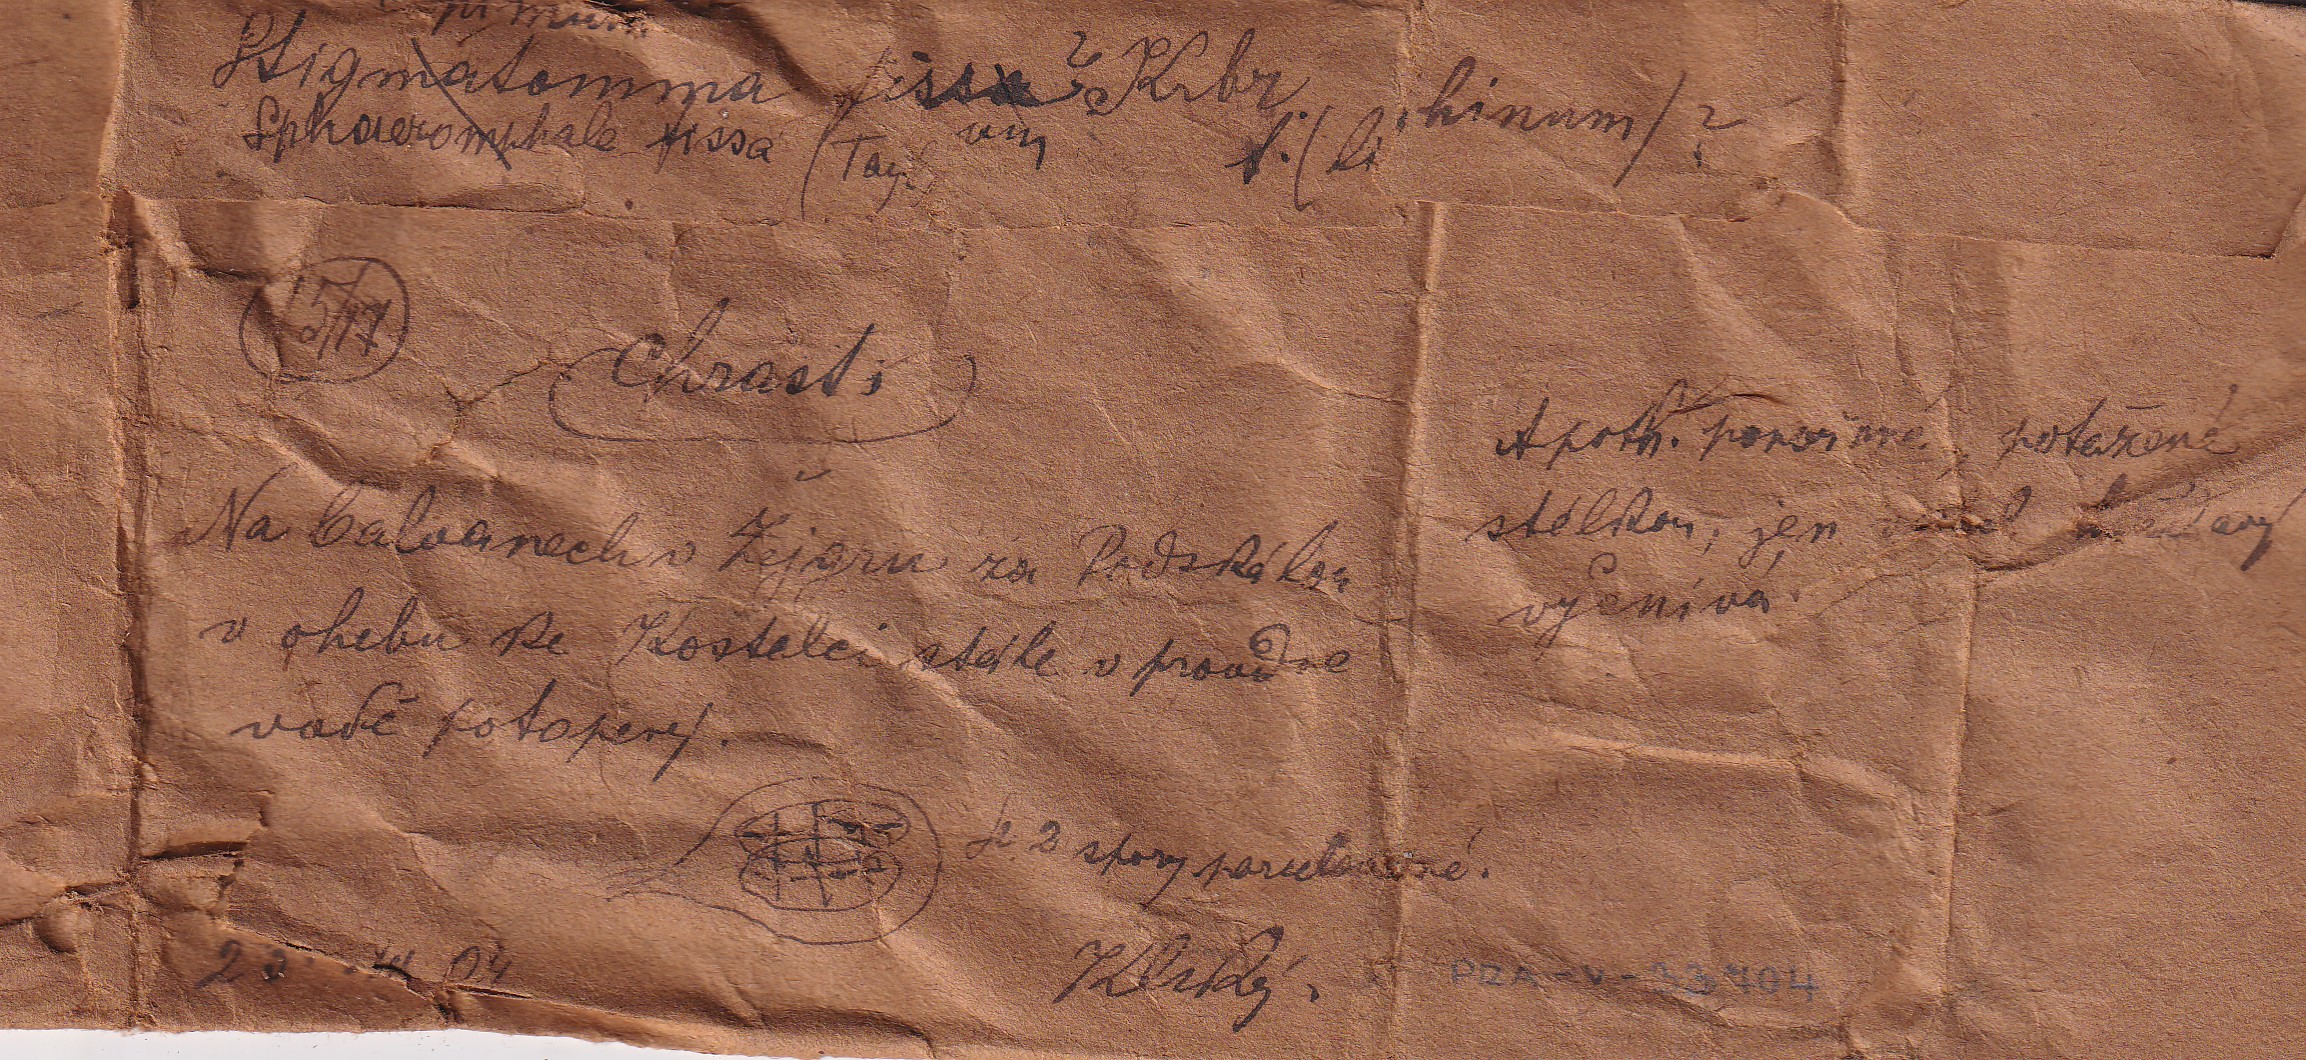 Stigmatomma fissa ? Krbr
Sphaeromphale fissa (Tayl) um f. (li hinum) ?
15/17
Chrasti
Na balvanech v Žejgru za Podskálou
v ohebu ke Kostelci stále v proudné
vodě potopený.
Apoth. ponořené, potažené
stélkou, jen
vyčnívá.
2 spory
Klický.
04
PRA-V-